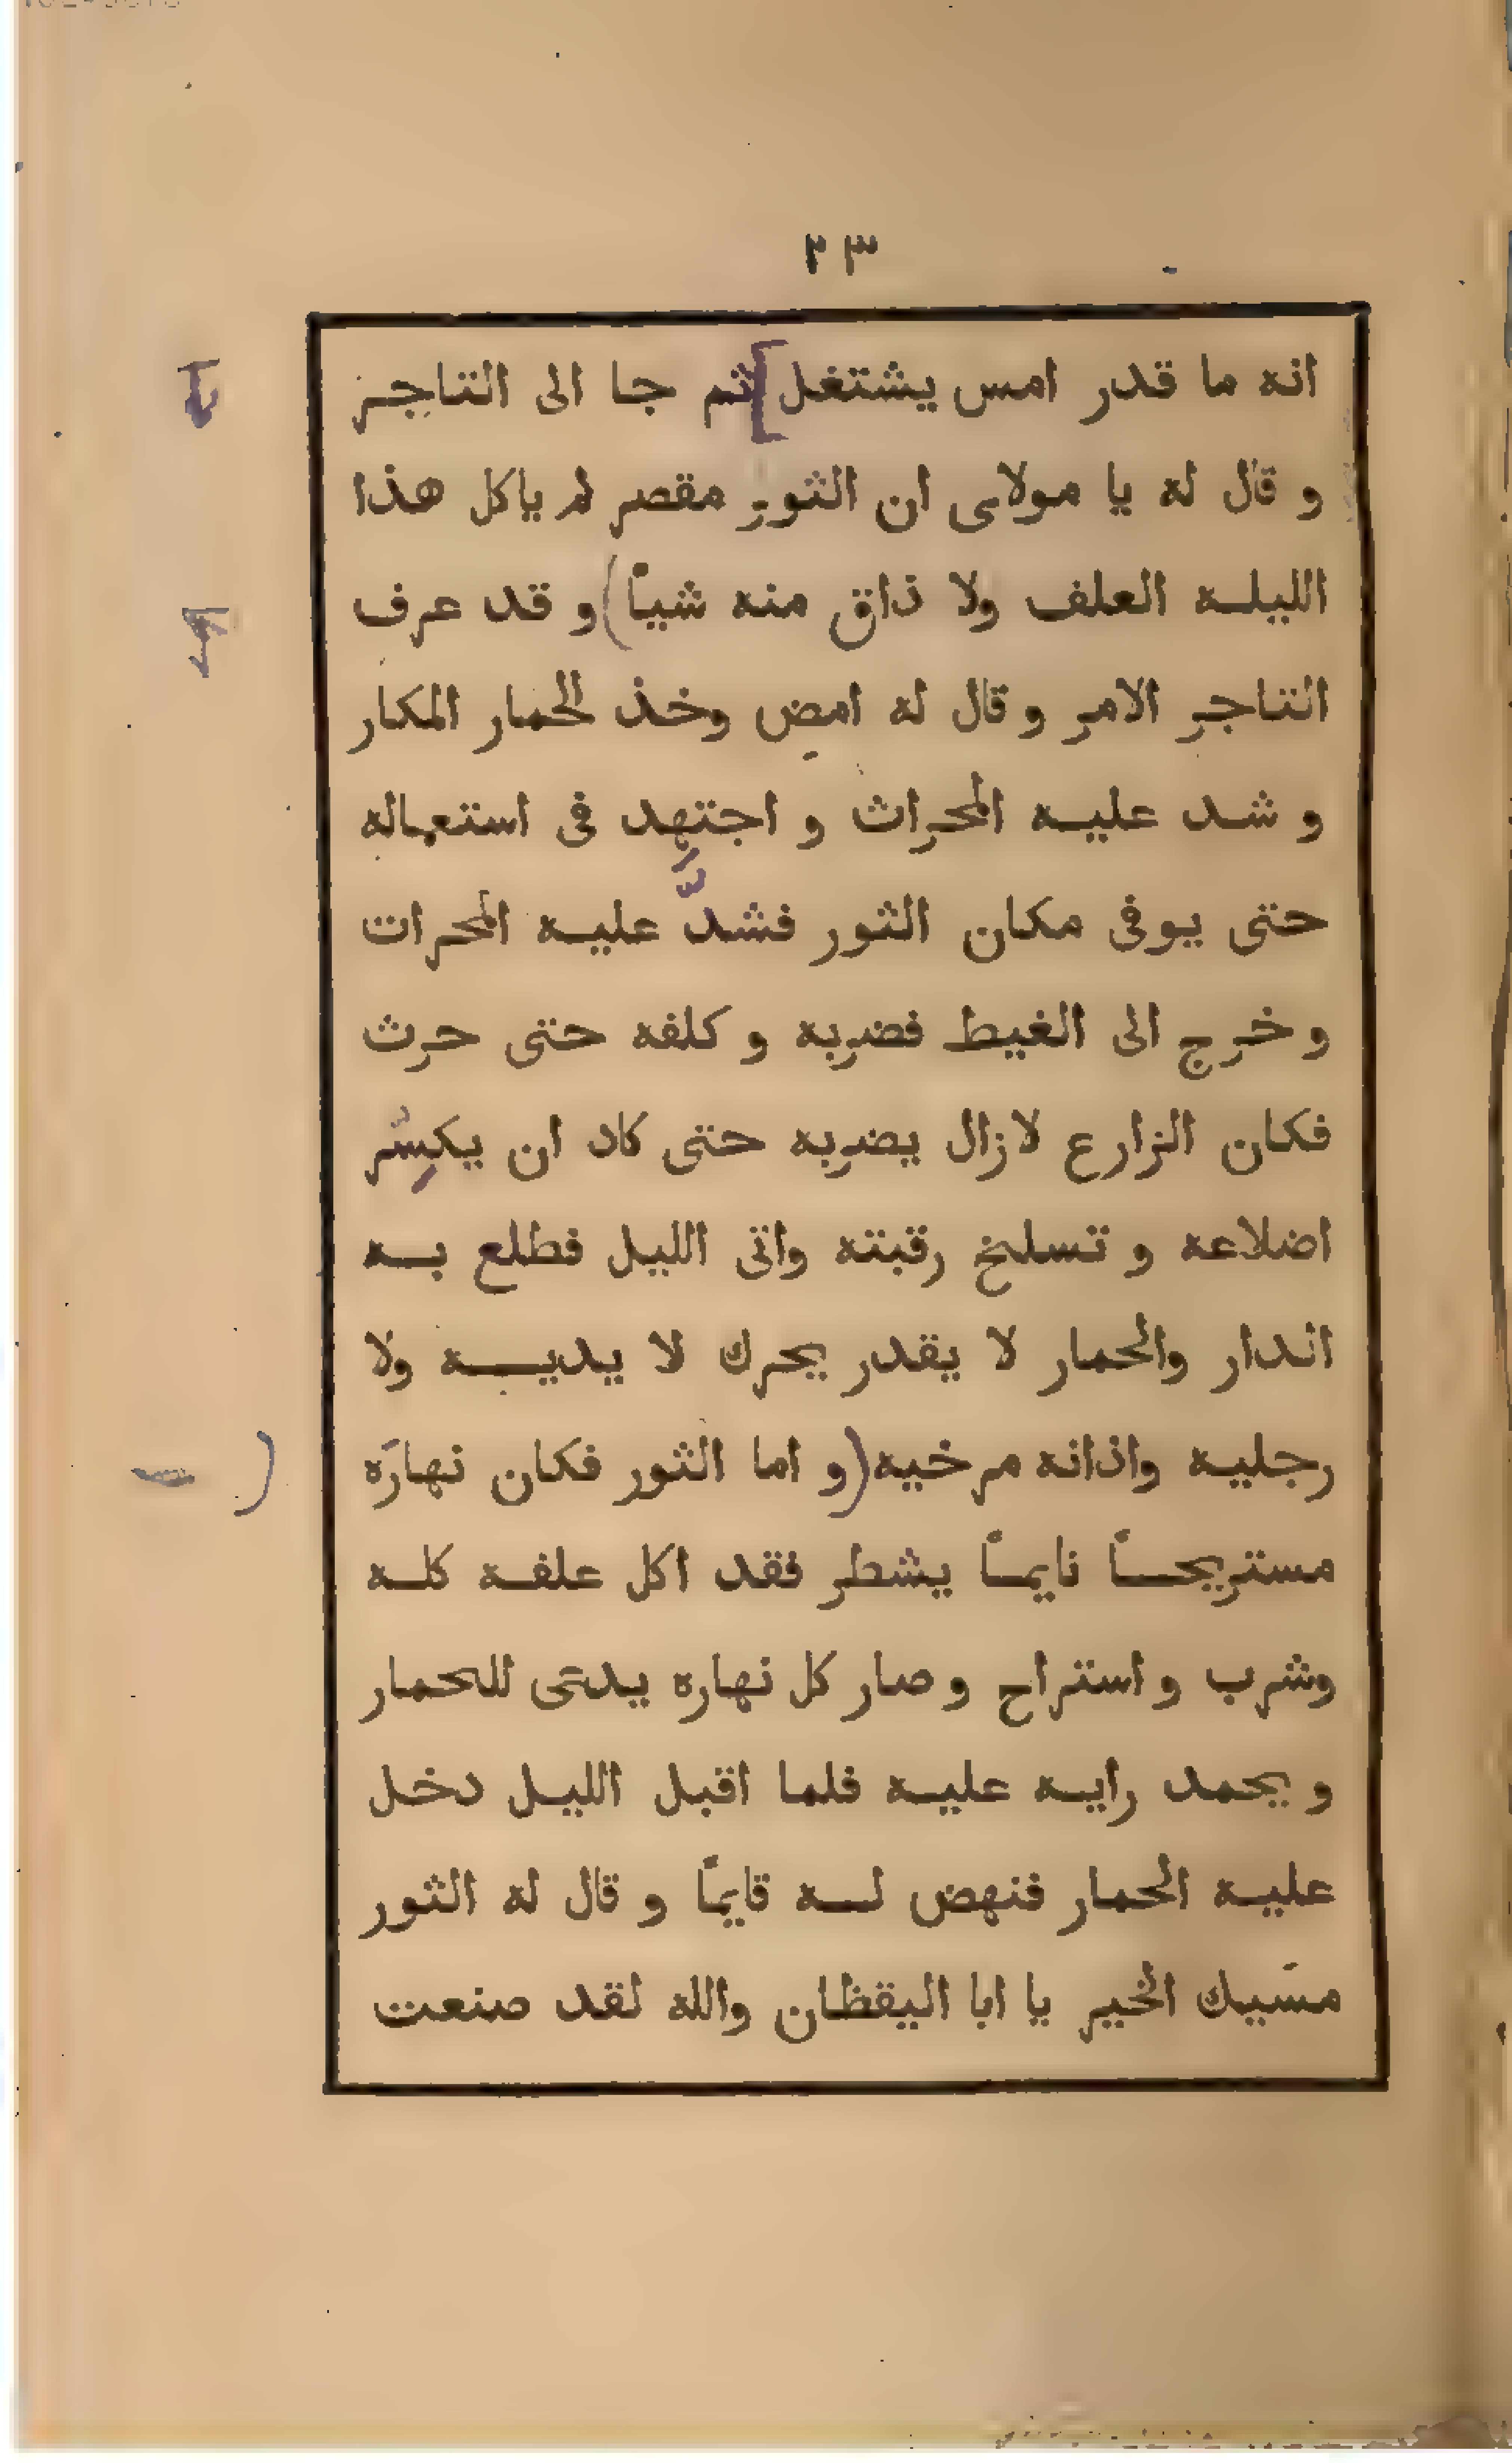 ٢٣
انه ما قدر امس يشتغل]ثم جا الى التاجر
و قال له يا مولاى ان الثور مقصر لم ياكل هذا
الليلـه العلف ولا ذاق منه شياً)و قد عرف
التاجر الامر و قال له امضِ وخذ الحمار المكار
و شد عليـه المحراث و اجتهد فى استعماله
حتى يوفى مكان الثور فشدَّ عليـه المحرات
و خرج الى الغيط فضربه و كلفه حتى حرث
فكان الزارع لازال يضربه حتى كاد ان يكسّر
اضلاعه و تسلخ رقبته واتى الليل فطلع بـه
الدار والحمار لا يقدر يحرك لا يديـه ولا
رجليـه واذانه مرخيه(و اما الثور فكان نهارَه
مستريحـاً نايمـاً يشطر فقد اكل علفـه كلـه
وشرب و استراح و صار كل نهاره يدعى للحمار
و يحمد رايـه عليـه فلما اقبل الليـل دخل
عليـه الحمار فنهض لـه قايمًا و قال له الثور
مسّيك الخير يا ابا اليقظان والله لقد صنعت